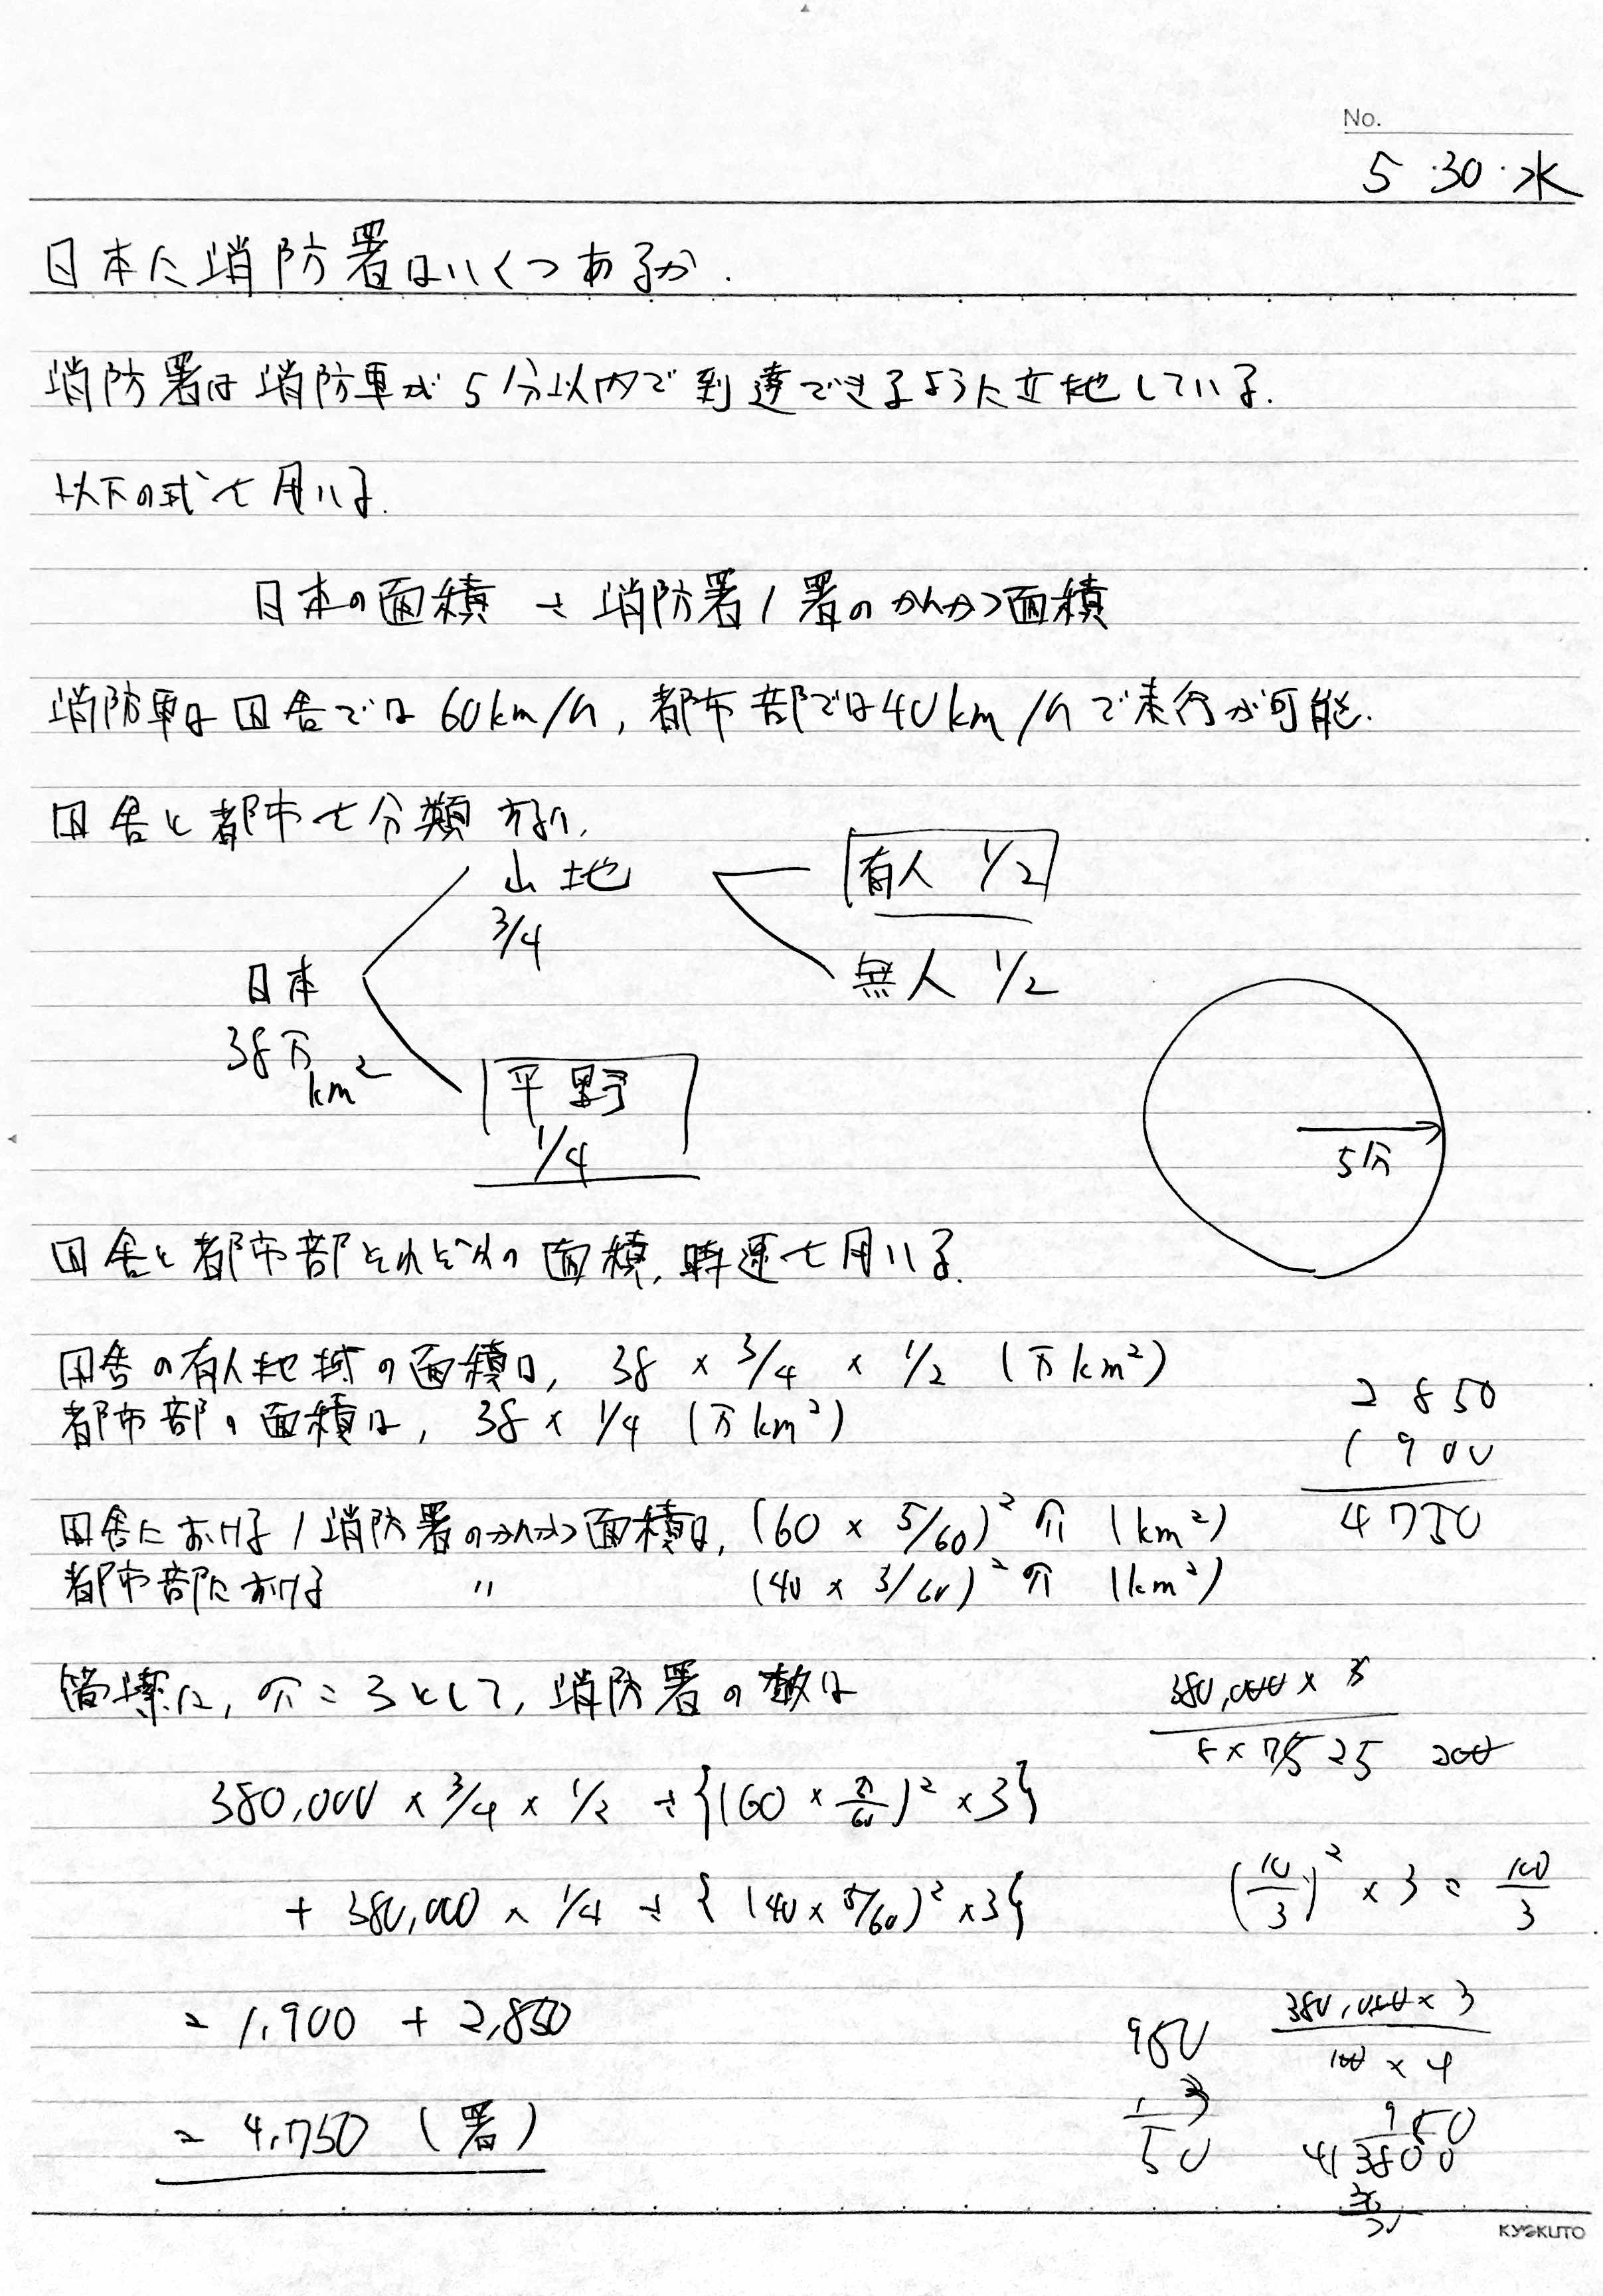 No.
5・30・水
日本に消防署はいくつあるか.
消防署は消防車が5分以内で到達できるように立地している.
以下の式を用いる.
日本の面積 ÷ 消防署1署のかんかつ面積
消防車は田舎では60km/h, 都市部では40km/hで走行が可能.
田舎と都市を分類すると,
山地
3/4
有人 1/2
無人 1/2
日本
38万
km²
平野
1/4
5分
田舎と都市部それぞれの面積, 時速を用いる.
田舎の有人地域の面積は, 38 × 3/4 × 1/2 (万km²)
都市部の面積は, 38 × 1/4 (万km²)
2850
1900
4750
田舎における1消防署のかんかつ面積は, (60 × 5/60)² π (km²)
都市部における 〃 (40 × 3/60)² π (km²)
簡単に, π = 3として, 消防署の数は
380,000 × 3
8 × 75 25 200
380,000 × 3/4 × 1/2 ÷ {(60 × 5/60)² × 3}
+ 380,000 × 1/4 ÷ {(40 × 5/60)² × 3}
(10/3)² × 3 = 100/3
= 1,900 + 2,850
950
3
50
380,000 × 3
100 × 4
= 4,750 (署)
950
4)3800
36
KYOKUTO